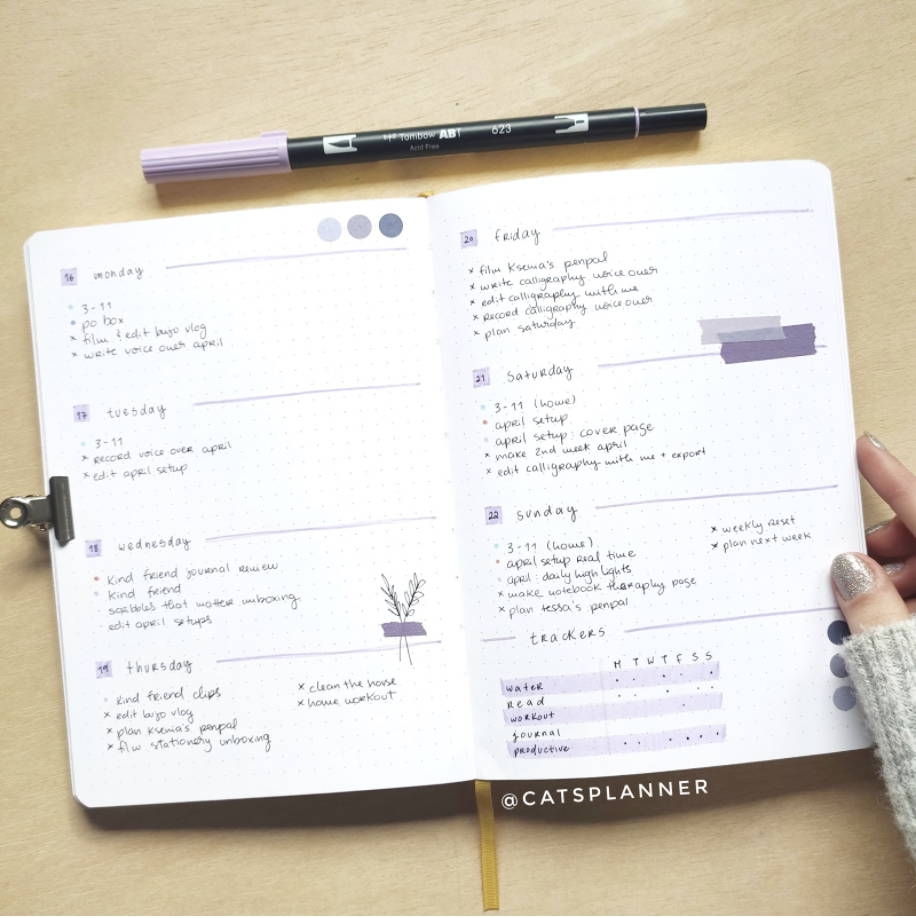 Tombow ABT
623
Acid Free
16 monday
3-11
po box
× film & edit bujo vlog
× write voice over april
17 tuesday
3-11
× record voice over april
× edit april setup
18 wednesday
kind friend journal review
kind friend
scribbles that matter unboxing
edit april setups
19 thursday
kind friend clips
× edit bujo vlog
× plan ksenia's penpal
× film stationery unboxing
× clean the house
× home workout
20 friday
× film Ksenia's penpal
× write calligraphy voice over
× edit calligraphy with me
× record calligraphy voice over
× plan saturday
21 saturday
3-11 (home)
april setup
april setup: cover page
× make 2nd week april
× edit calligraphy with me + export
22 sunday
3-11 (home)
april setup real time
april: daily high lights
× make notebook therapy page
× plan tessa's penpal
× weekly reset
× plan next week
trackers
M T W T F S S
water
read
workout
journal
productive
@CATSPLANNER